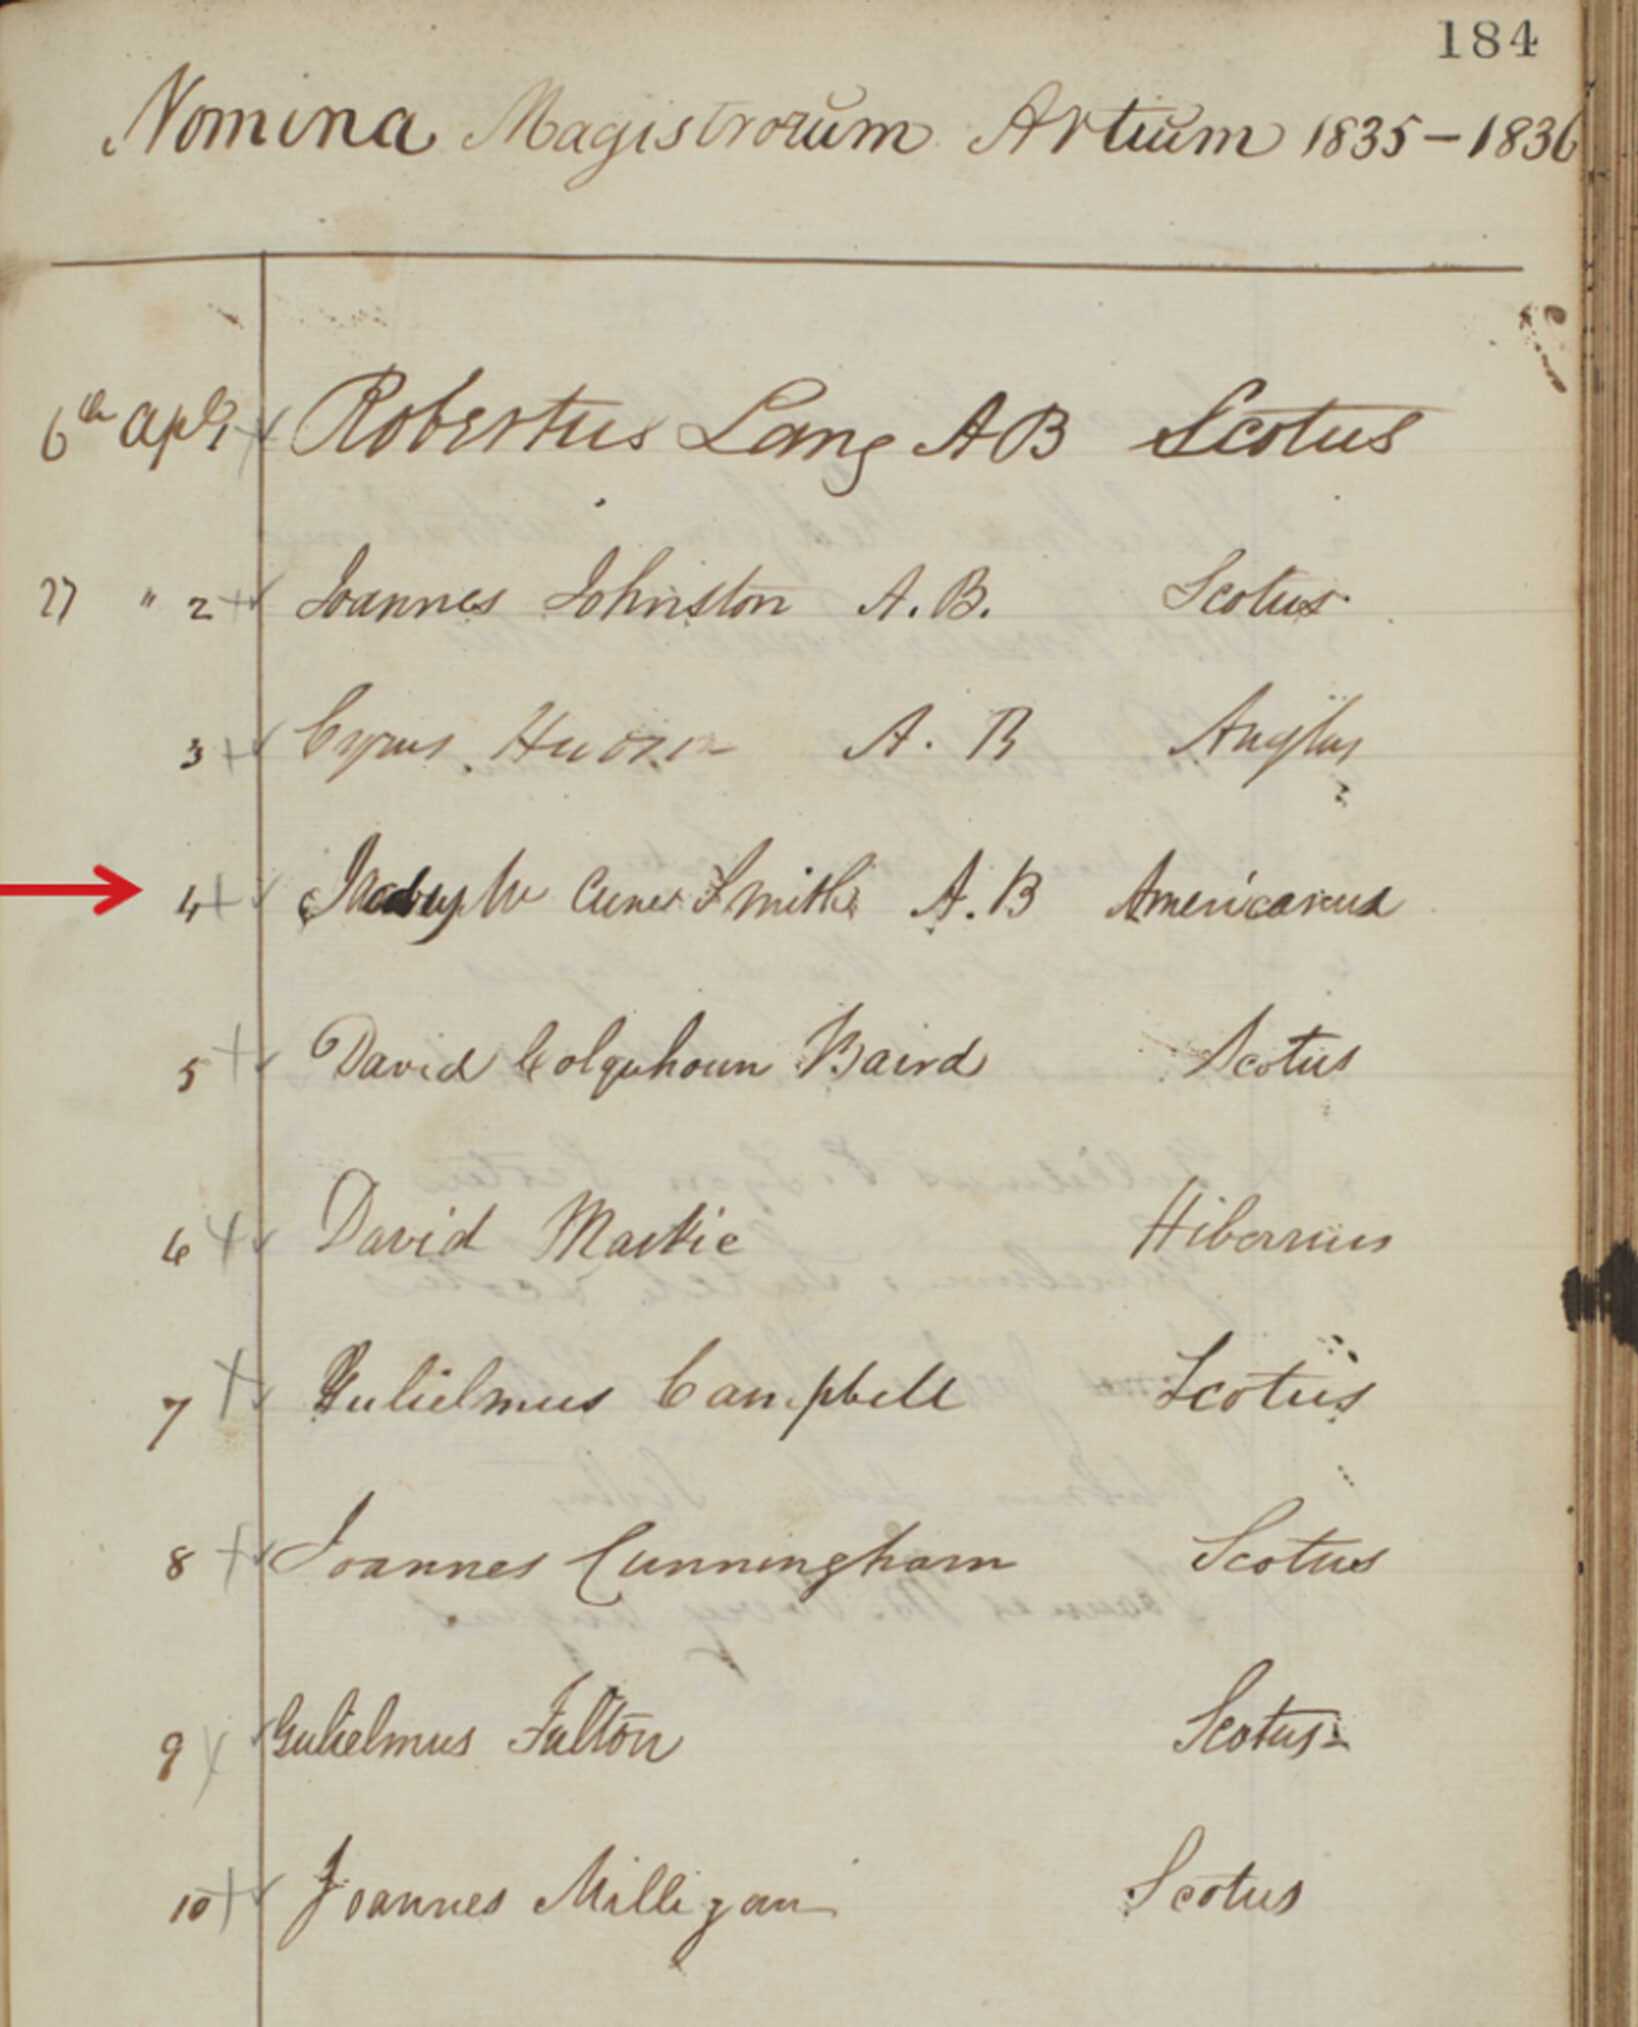 184
Nomina Magistrorum Artium 1835-1836
6th Apl 1 Robertus Lang AB Scotus
27 " 2 Joannes Johnston A.B. Scotus
3 Cyrus A. B Anglus
4 Cune Smith A.B Americanus
5 David Colquhoun Baird Scotus
6 David Mackie Hibernus
7 Gulielmus Campbell Scotus
8 Joannes Cunningham Scotus
9 Gulielmus Fulton Scotus
10 Joannes Milligan Scotus